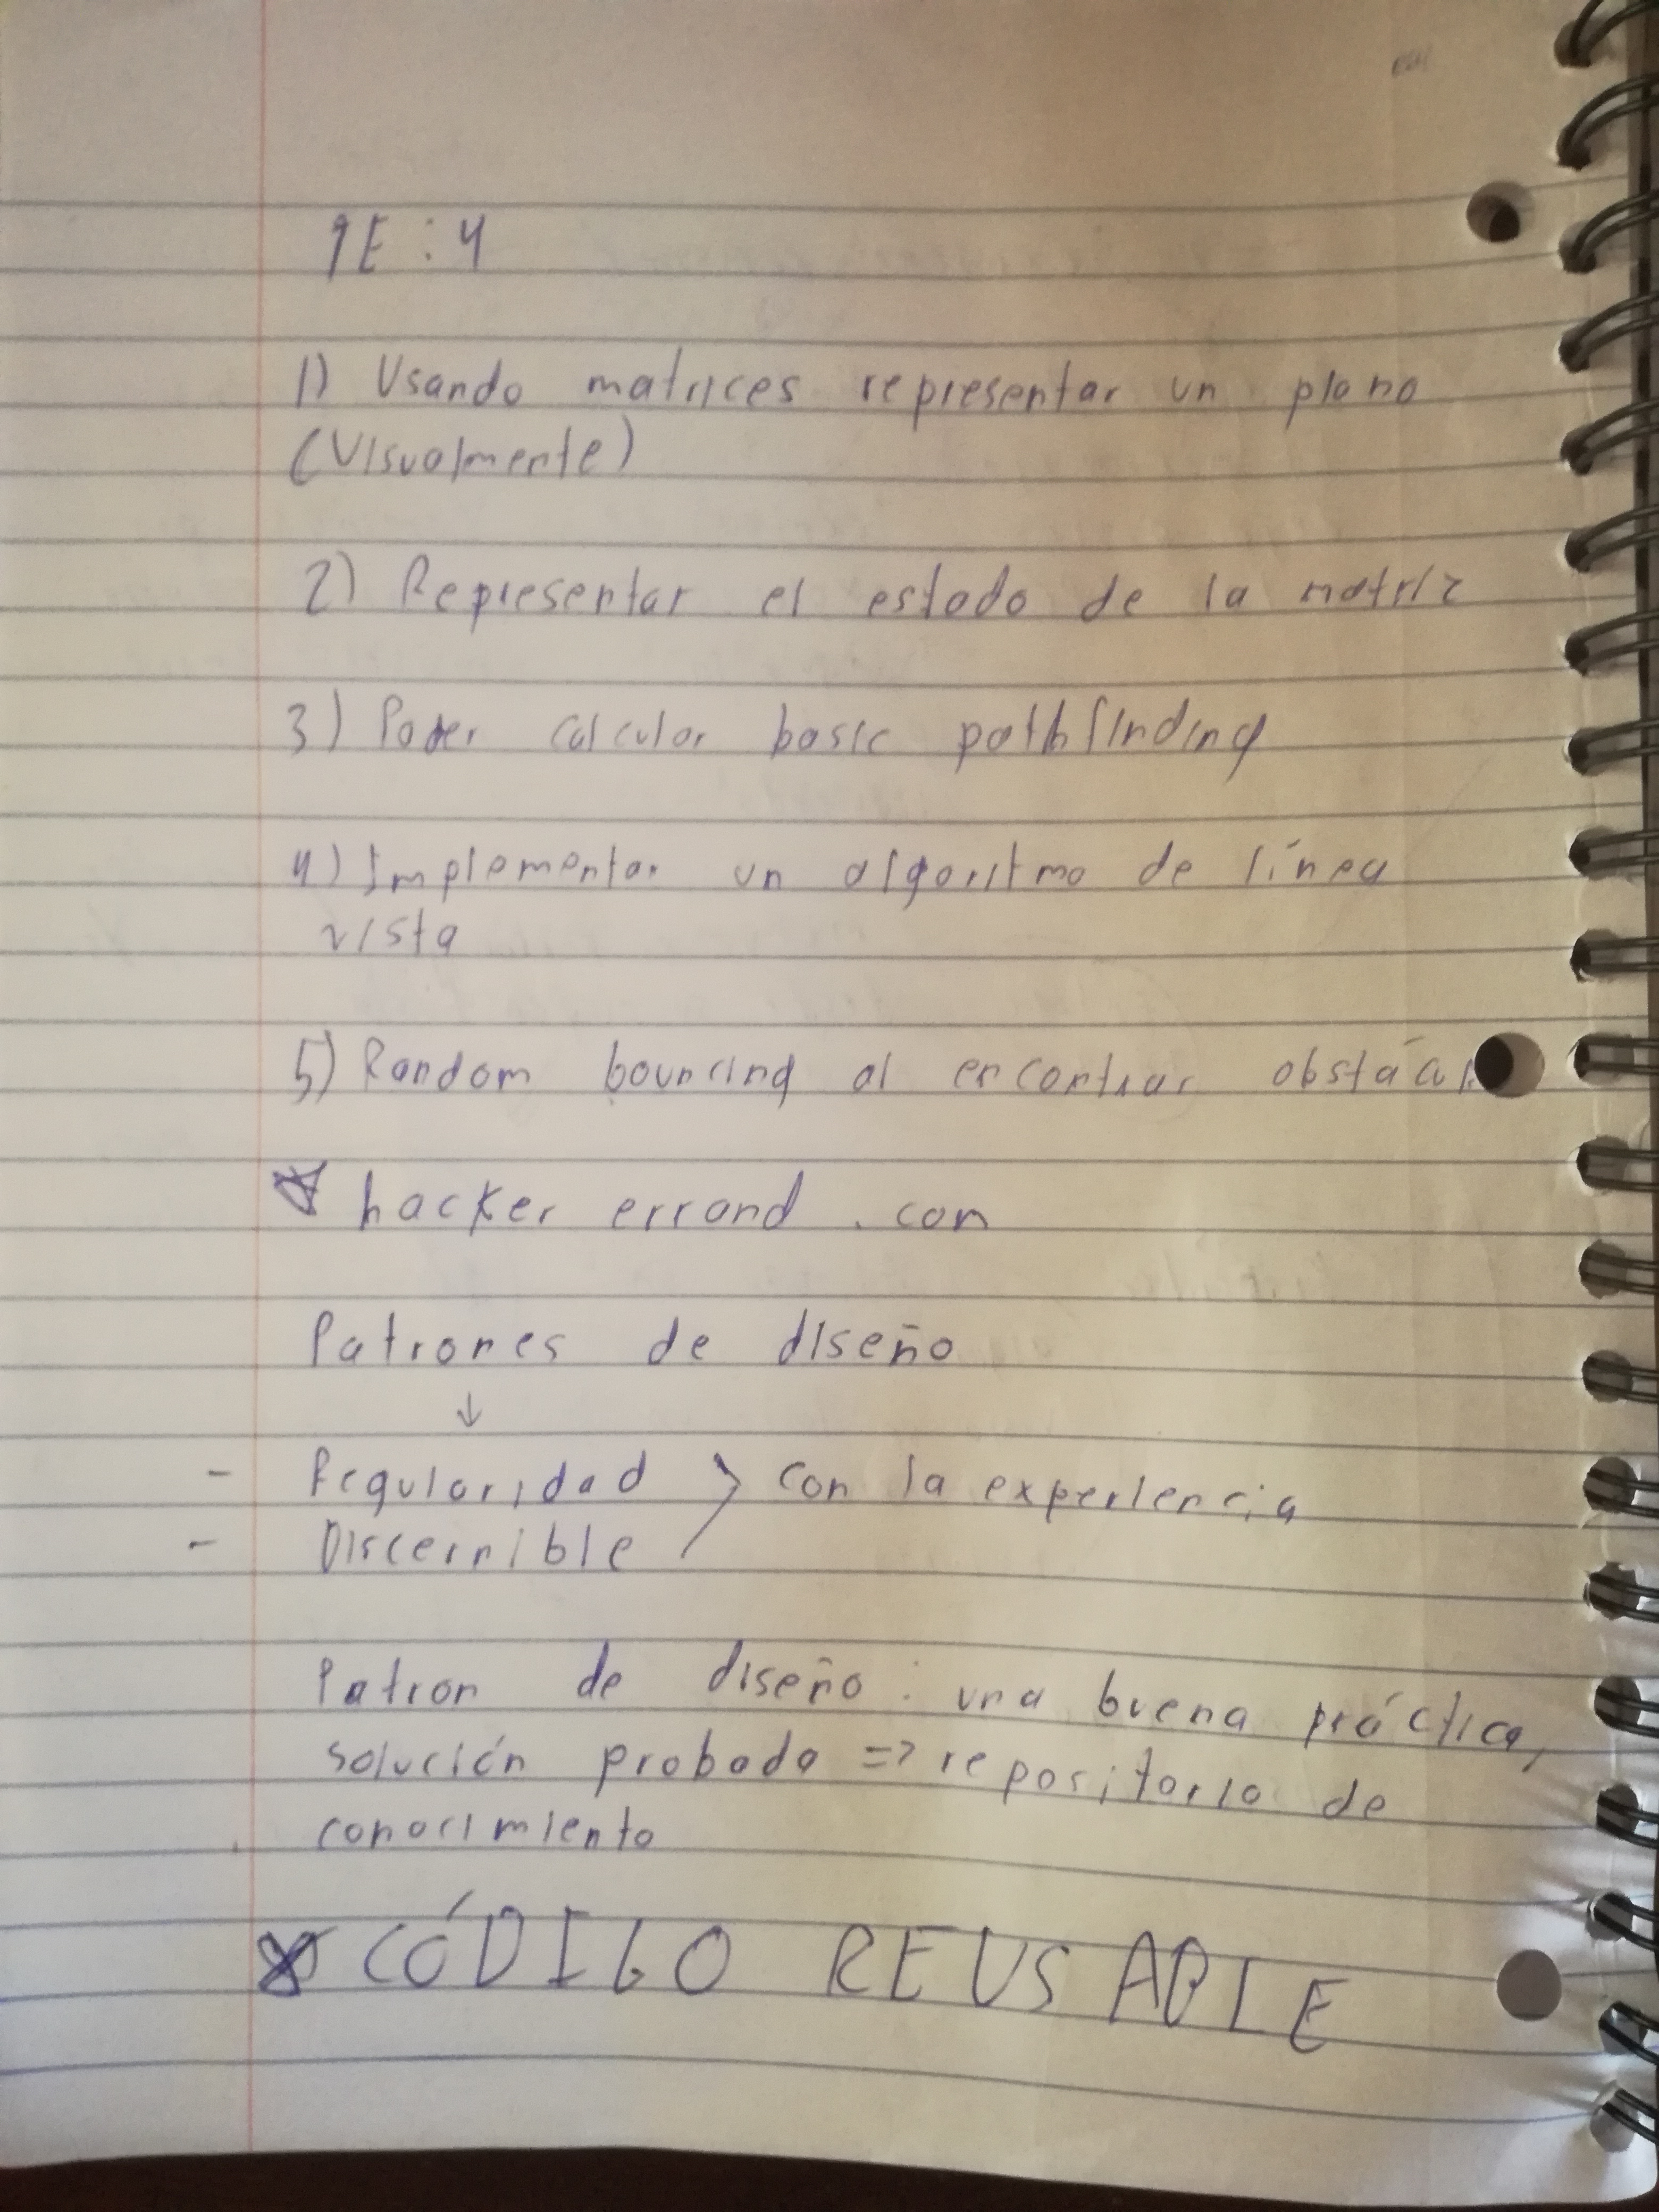 1E : 4
1) Usando matrices representar un plano
(Visualmente)
2) Representar el estado de la matriz
3) Poder calcular basic pathfinding
4) Implementar un algoritmo de línea
vista
5) Random bouncing al encontrar
hacker errand . com
Patrones de diseño
↓
- Regularidad > con la experiencia
- Discernible
Patron de diseño : una buena práctica,
solución probada => repositorio de
conocimiento
CÓDIGO REUSABLE